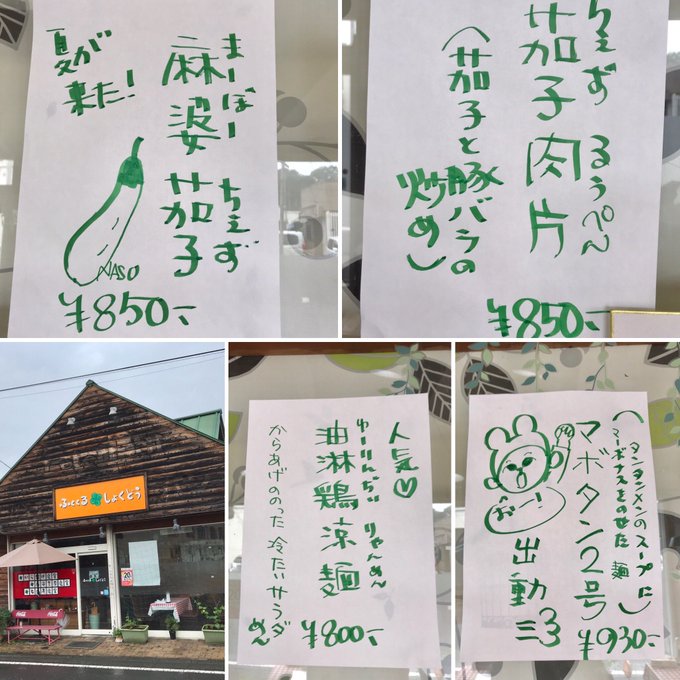 夏が
来た！
まーぼー
麻婆
ちぇず
茄子
NASO
¥850-
ちぇず
茄子
るぅぺん
肉片
（茄子と豚バラの
炒め）
¥850-
しょくどう
人気♡
ゆーりんぢぃ
油淋鶏
りゃんめん
涼麺
からあげのった 冷たいサラダ
めん
¥800-
（タンタンメンのスープに
マーボナスをのせた 麺）
マボタン2号
出動
おー！
¥930-
Coca-Cola